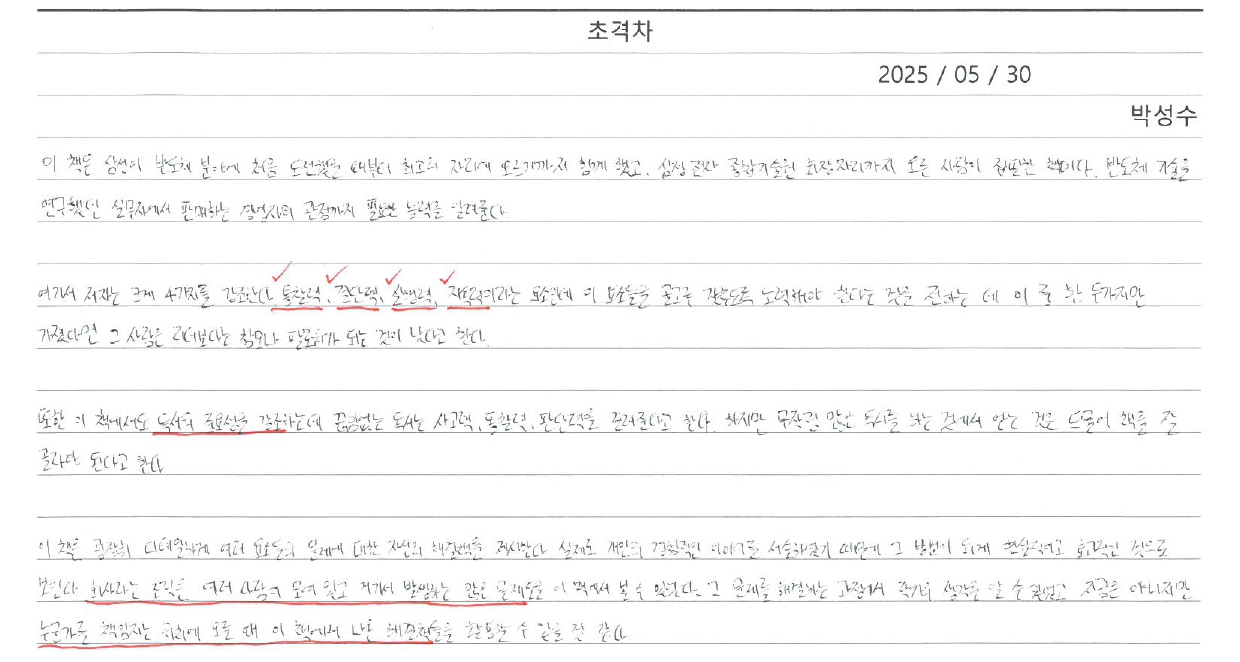 초격차
2025 / 05 / 30
박성수
이 책은 삼성이 반도체 분야에 처음 도전했을 때부터 최고의 자리에 오르기까지 함께 했고, 삼성전자 종합기술원 회장자리까지 오른 사람이 집필한 책이다. 반도체 기술을
연구했던 실무자에서 판매하는 경영자의 관점까지 필요한 능력을 알려준다.
여기서 저자는 크게 4가지를 강조한다. 통찰력, 결단력, 실행력, 지속력이라는 요소인데 이 요소들을 골고루 갖추도록 노력해야 한다는 것을 전하는 데 이 중 한 두가지만
가졌다면 그 사람은 리더보다는 참모나 팔로워가 되는 것이 낫다고 한다.
또한 이 책에서도 독서의 중요성을 강조하는데 끊임없는 독서는 사고력, 통찰력, 판단력을 길러준다고 한다. 하지만 무작정 많은 독서를 하는 것에서 얻는 것은 드물어 책을 잘
골라야 된다고 한다.
이 책은 굉장히 디테일하게 여러 요소들의 문제에 대한 자신의 해결책을 제시한다. 실제로 개인의 경험적인 이야기를 서술하였기 때문에 그 방법이 되게 현실적이고 효과적인 것으로
보인다. 회사라는 조직은 여러 사람이 모여 있고 거기서 발생하는 많은 문제들을 이 책에서 볼 수 있었다. 그 문제를 해결하는 과정에서 깊은 생각을 할 수 있었고 지금은 아니지만
누군가를 책임지는 위치에 오를 때 이 책에서 나온 해결책들을 활용할 수 있을 것 같다.